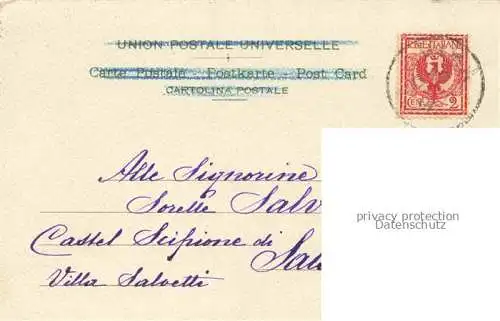 UNION POSTALE UNIVERSELLE
Carte Postale - Postkarte - Post Card
CARTOLINA POSTALE
POSTE ITALIANE
CENT. 2
privacy protection
Datenschutz
Alle Signorine
Sorelle Salv
Castel Scipione di
Sal
Villa Salvetti